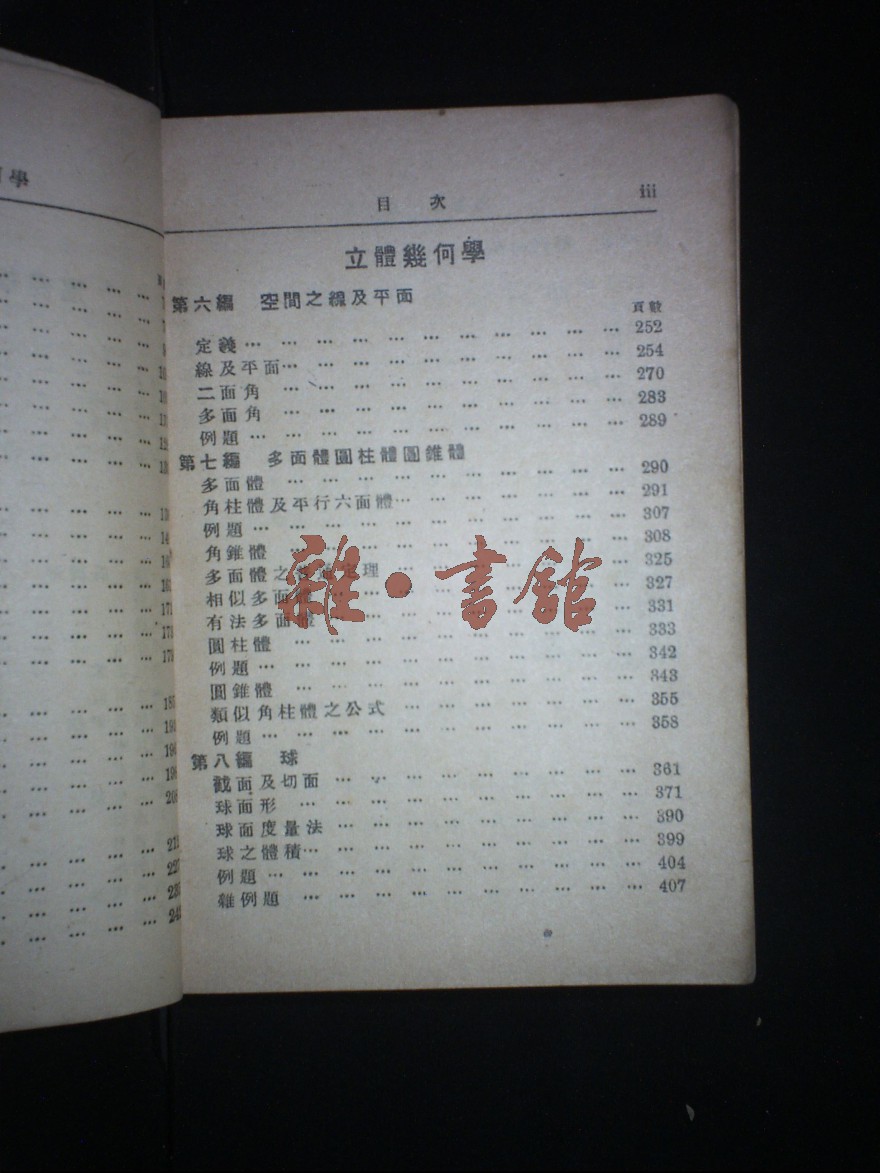 學
目 次 iii
立體幾何學
第六編 空間之線及平面
頁數
定義 ... 252
線及平面 ... 254
二面角 ... 270
多面角 ... 283
例題 ... 289
第七編 多面體圓柱體圓錐體
多面體 ... 290
角柱體及平行六面體 ... 291
例題 ... 307
角錐體 ... 308
多面體之 定理 ... 325
相似多面體 ... 327
有法多面體 ... 331
圓柱體 ... 333
例題 ... 342
圓錐體 ... 343
類似角柱體之公式 ... 355
例題 ... 358
第八編 球
截面及切面 ... 361
球面形 ... 371
球面度量法 ... 390
球之體積 ... 399
例題 ... 404
雜例題 ... 407
雜·書館